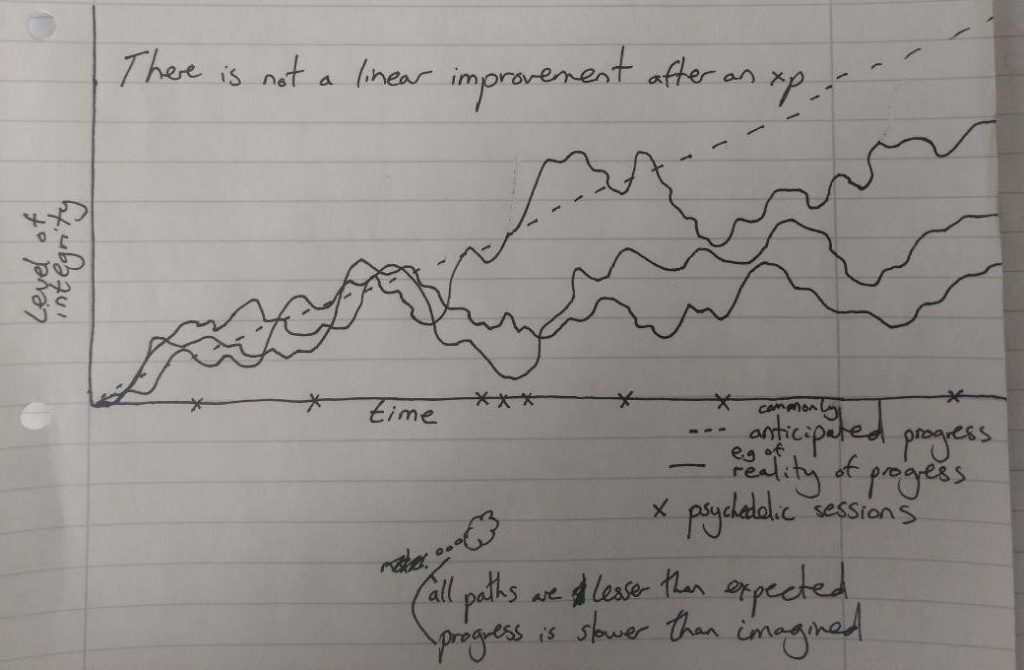 There is not a linear improvement after an xp
Level of
integrity
time
commonly
--- anticipated progress
e.g of
— reality of progress
x psychedelic sessions
all paths are lesser than expected
progress is slower than imagined